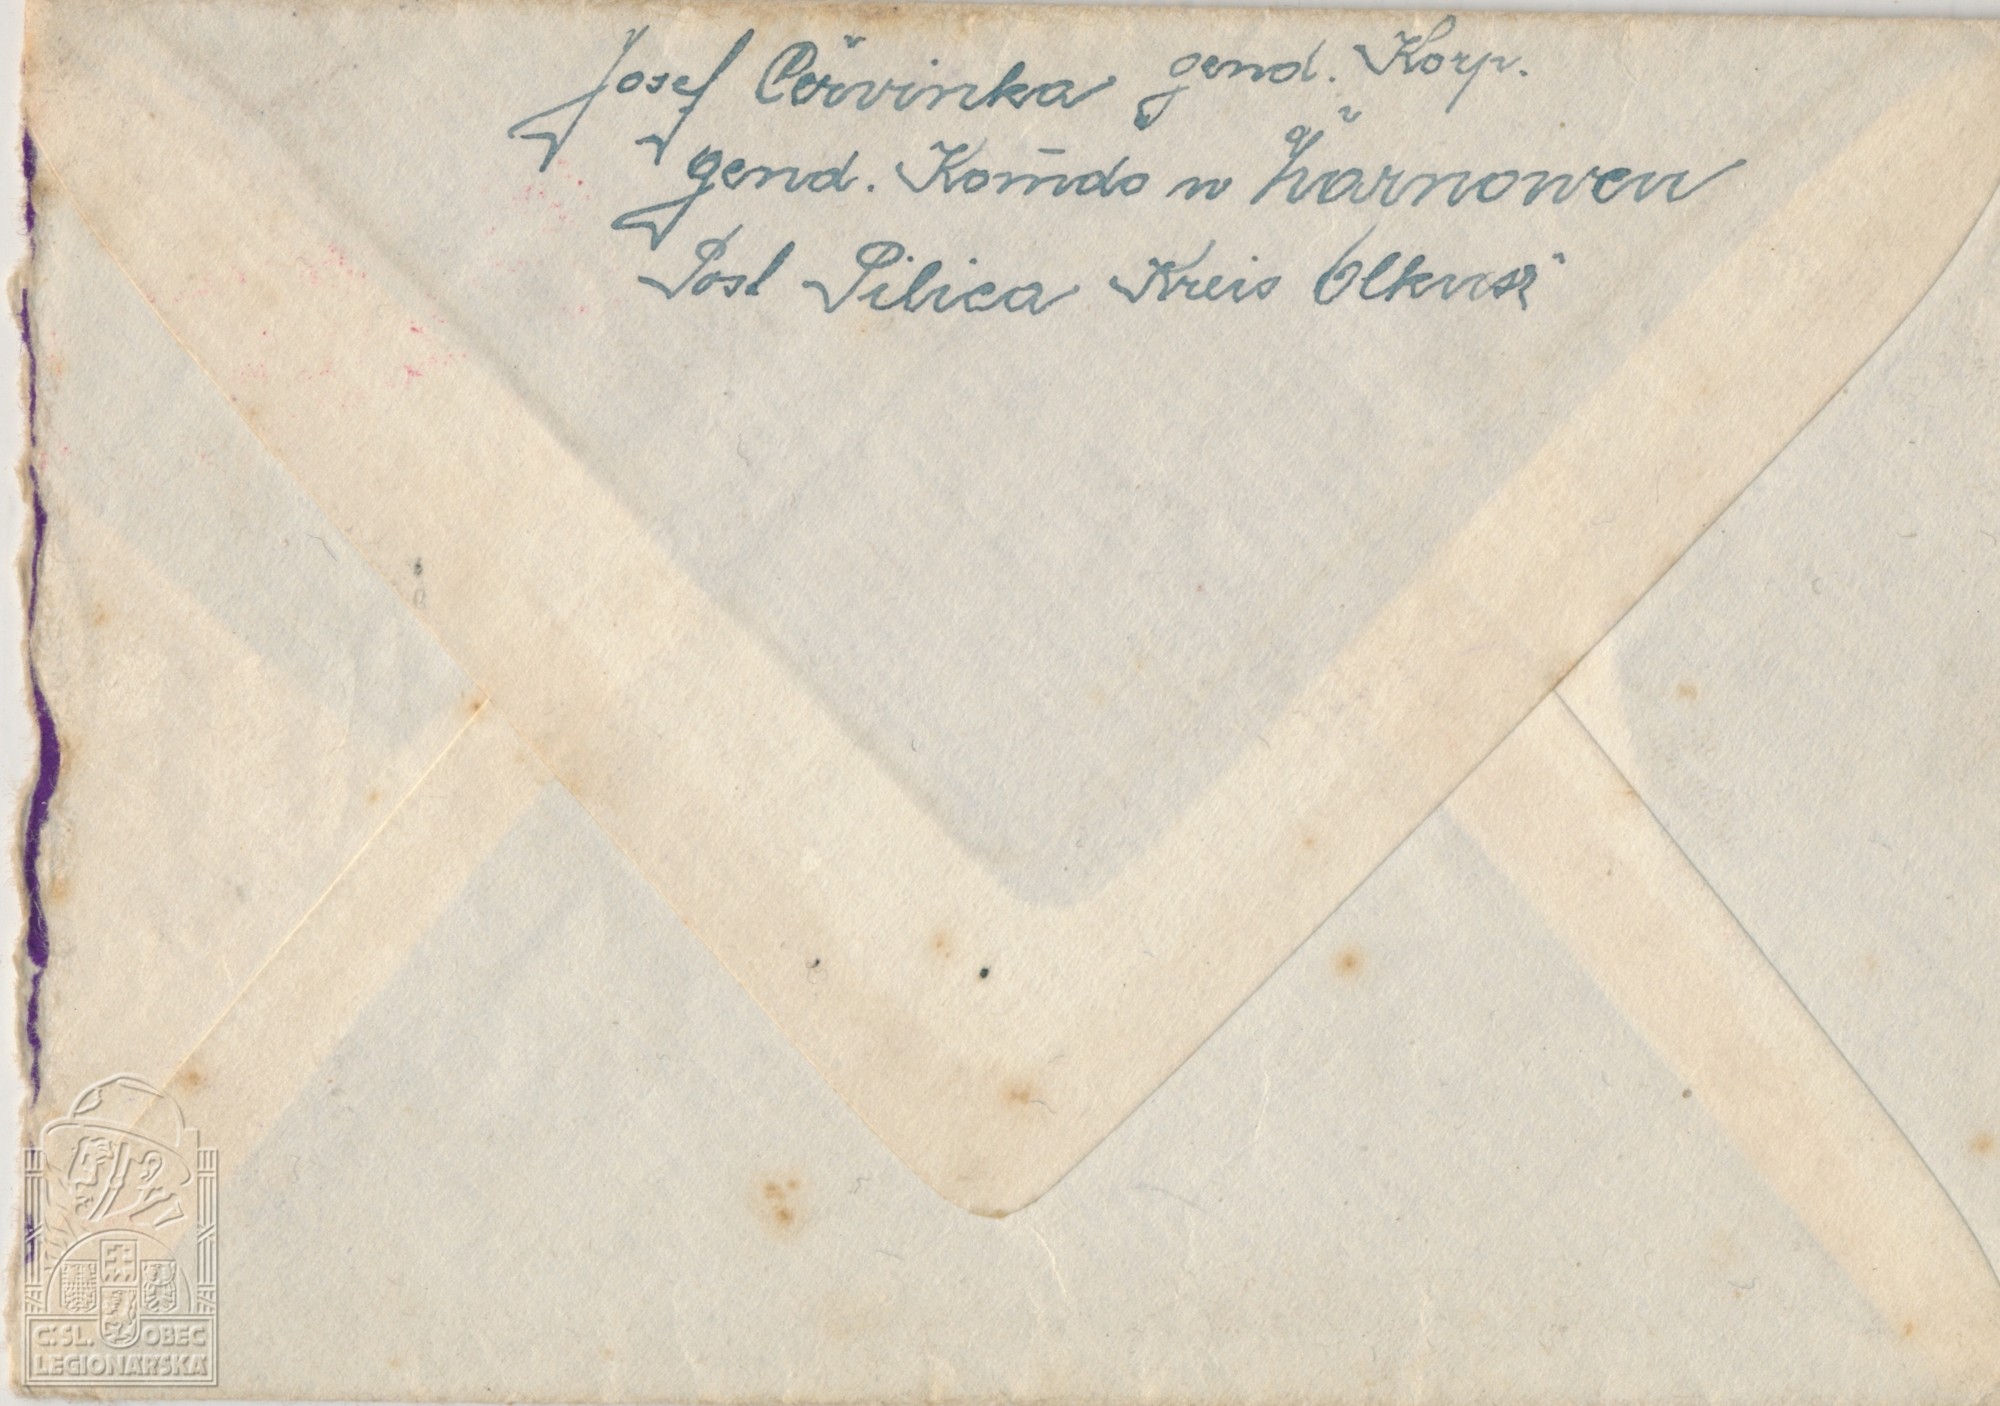 Josef Červinka gend. Korp.
gend. Komdo w Žarnowcu
Post Pilica Kreis Olkusz
Č.SL. OBEC
LEGIONÁŘSKÁ